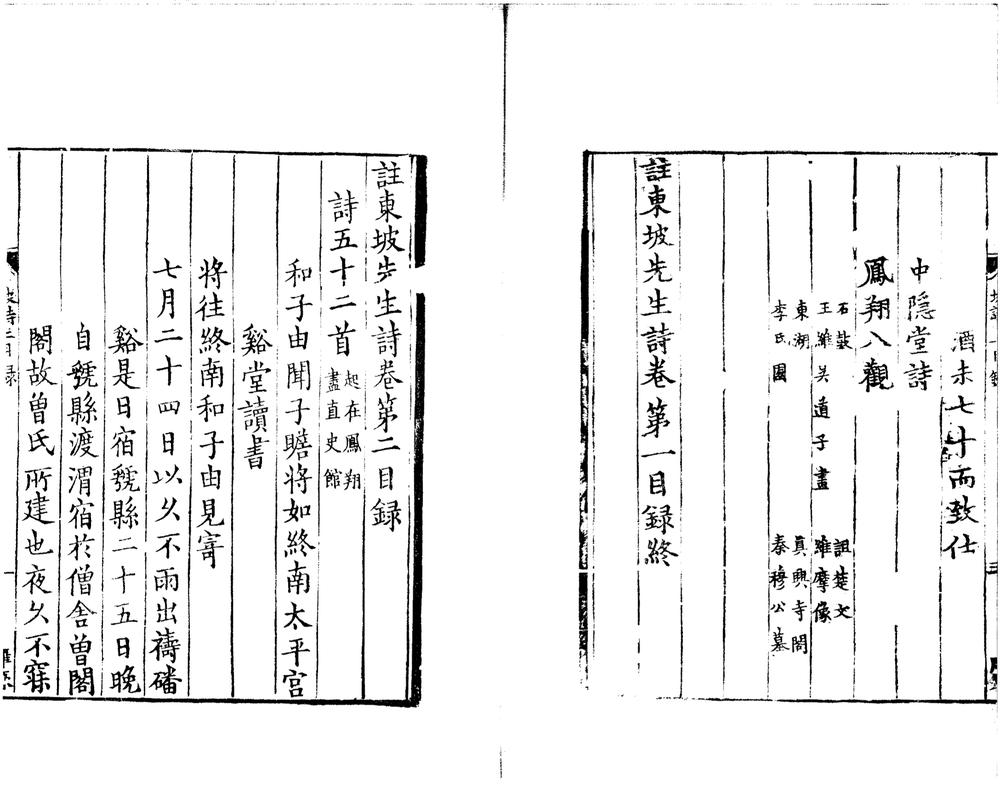 酒未七十而致仕
中隱堂詩
鳳翔八觀
石鼓　詛楚文
王維吴道子畫　維摩像
東湖　真興寺閣
李氏園　秦穆公墓
註東坡先生詩卷第一目録終
註東坡先生詩卷第二目録
詩五十二首
起在鳳翔
盡直史館
和子由聞子瞻將如終南太平宫
谿堂讀書
將往終南和子由見寄
七月二十四日以乆不雨出禱磻
谿是日宿虢縣二十五日晚
自虢縣渡渭宿於僧舎曽閣
閣故曽氏所建也夜乆不寐